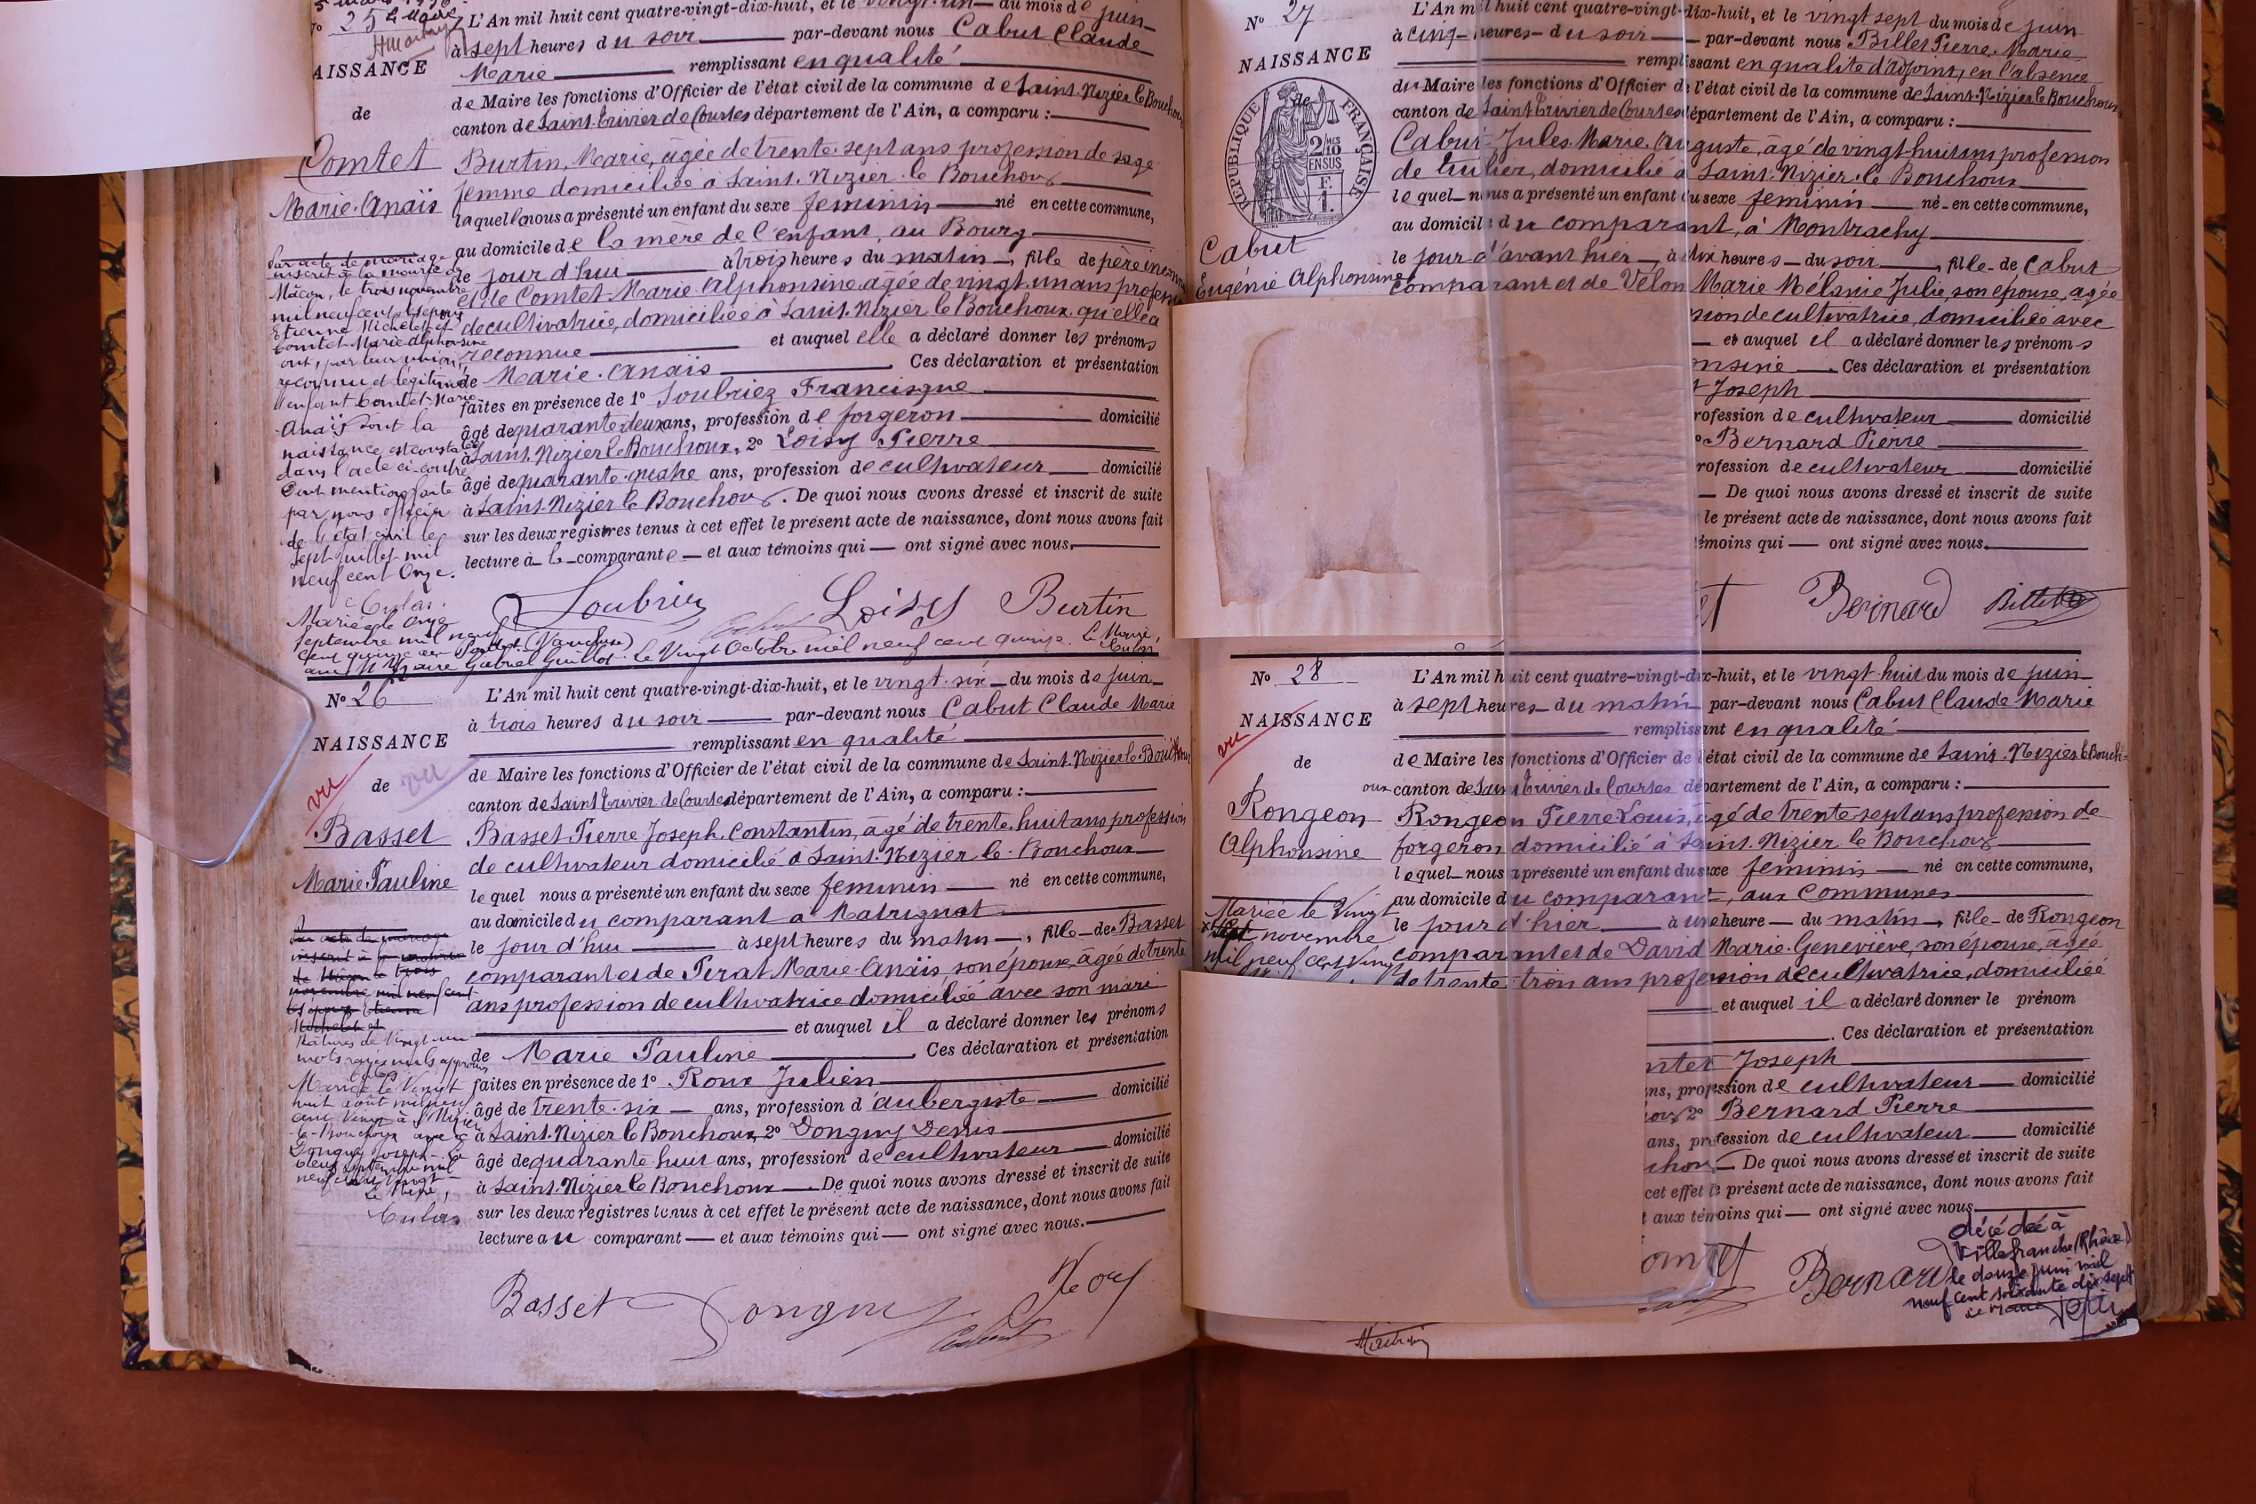 No 25
L'An mil huit cent quatre-vingt-dix-huit, et le vingt-un du mois de juin
à sept heures du soir par-devant nous Cabut Claude
Marie remplissant en qualité
de Maire les fonctions d'Officier de l'état civil de la commune de Saint-Nizier le Bouchoux
canton de Saint Trivier de Courtes département de l'Ain, a comparu :
AISSANCE
de
Comtet
Marie-Anaïs
Burtin, Marie, âgée de trente-sept ans profession de sage
femme domiciliée à Saint-Nizier-le Bouchoux
laquelle nous a présenté un enfant du sexe féminin né en cette commune,
au domicile de la mère de l'enfant, au Bourg
le jour d'hui à trois heures du matin, fille de père inconnu
et de Comtet Marie Alphonsine âgée de vingt-un ans profession
de cultivatrice, domiciliée à Saint-Nizier le Bouchoux qu'elle a
reconnue et auquel elle a déclaré donner les prénoms
de Marie-Anaïs Ces déclaration et présentation
faites en présence de 1o Soubriez Francisque
âgé de quarante deux ans, profession de forgeron domicilié
à Saint-Nizier le Bouchoux, 2o Loisy Pierre
âgé de quarante-quatre ans, profession de cultivateur domicilié
à Saint-Nizier le Bouchoux. De quoi nous avons dressé et inscrit de suite
sur les deux registres tenus à cet effet le présent acte de naissance, dont nous avons fait
lecture à la comparante et aux témoins qui ont signé avec nous.
Par acte de mariage
inscrit à la mairie de
Mâcon, le trois novembre
mil neuf cent
Etienne Michelet et
Comtet Marie Alphonsine
ont, par leur union,
reconnu et légitimé
l'enfant Comtet Marie
Anaïs dont la
naissance est constatée
dans l'acte ci-contre
Dont mention faite
par nous officier
de l'état civil le
sept juillet mil
neuf cent onze.
Culas
Soubriez Loisy Burtin
Mariée le onze
septembre mil neuf
cent quinze (Vaucluse)
Gabriel Guillot. Le vingt octobre mil neuf cent quinze. Le Maire,
Culas
No 26
NAISSANCE
de
vu
vu
Basset
Marie Pauline
L'An mil huit cent quatre-vingt-dix-huit, et le vingt-six du mois de juin
à trois heures du soir par-devant nous Cabut Claude Marie
remplissant en qualité
de Maire les fonctions d'Officier de l'état civil de la commune de Saint-Nizier le Bouchoux
canton de Saint Trivier de Courtes département de l'Ain, a comparu :
Basset Pierre Joseph Constantin, âgé de trente-huit ans profession
de cultivateur domicilié à Saint-Nizier le Bouchoux
lequel nous a présenté un enfant du sexe féminin né en cette commune,
au domicile du comparant à Matrignat
le jour d'hui à sept heures du matin, fille de Basset
comparant et de Perat Marie-Anaïs son épouse, âgée de trente
ans profession de cultivatrice domiciliée avec son mari
et auquel il a déclaré donner les prénoms
de Marie Pauline Ces déclaration et présentation
faites en présence de 1o Roux Julien
âgé de trente-six ans, profession d'aubergiste domicilié
à Saint-Nizier le Bouchoux, 2o Donguy Denis
âgé de quarante huit ans, profession de cultivateur domicilié
à Saint-Nizier le Bouchoux. De quoi nous avons dressé et inscrit de suite
sur les deux registres tenus à cet effet le présent acte de naissance, dont nous avons fait
lecture au comparant et aux témoins qui ont signé avec nous.
Par acte de mariage
inscrit à la mairie
de Mâcon le trois
novembre mil neuf cent
Etienne
Michelet et
Ratures de vingt-un
mots rayés nuls approuvés
Culas
Mariée le vingt
huit août mil neuf
cent vingt à St Nizier
le-Bouchoux avec
Donguy Joseph. Le
septembre mil
neuf cent vingt
Le Maire,
Culas
Basset Donguy Roux
Cabut
No 27
NAISSANCE
de
RÉPUBLIQUE FRANÇAISE
2/10 EN SUS
Cabut
Eugénie Alphonsine
L'An mil huit cent quatre-vingt-dix-huit, et le vingt sept du mois de juin
à cinq heures du soir par-devant nous Billet Pierre Marie
remplissant en qualité d'adjoint, en l'absence
du Maire les fonctions d'Officier de l'état civil de la commune de Saint-Nizier le Bouchoux
canton de Saint Trivier de Courtes département de l'Ain, a comparu :
Cabut Jules Marie Auguste, âgé de vingt-huit ans profession
de tuilier, domicilié à Saint-Nizier-le Bouchoux
lequel nous a présenté un enfant du sexe féminin né en cette commune,
au domicile du comparant, à Montrachy
le jour d'avant hier, à dix heures du soir, fille de Cabut
comparant et de Velon Marie Mélanie Julie, son épouse, agée
sion de cultivatrice, domiciliée avec
et auquel il a déclaré donner les prénoms
onsine Ces déclaration et présentation
t Joseph
rofession de cultivateur domicilié
o Bernard Pierre
rofession de cultivateur domicilié
De quoi nous avons dressé et inscrit de suite
le présent acte de naissance, dont nous avons fait
émoins qui ont signé avec nous.
et Bernard Billet
No 28
NAISSANCE
vu
de
Rongeon
Alphonsine
L'An mil huit cent quatre-vingt-dix-huit, et le vingt-huit du mois de juin
à sept heures du matin par-devant nous Cabut Claude Marie
remplissant en qualité
de Maire les fonctions d'Officier de l'état civil de la commune de Saint-Nizier le Bouch-
oux canton de Saint Trivier de Courtes département de l'Ain, a comparu :
Rongeon Pierre Louis, âgé de trente-sept ans profession de
forgeron domicilié à Saint-Nizier le Bouchoux
lequel nous a présenté un enfant du sexe féminin né en cette commune,
au domicile du comparant, aux Communes
le jour d'hier à une heure du matin, fille de Rongeon
comparant et de David Marie-Geneviève, son épouse, âgée
de trente-trois ans profession de cultivatrice, domiciliée
et auquel il a déclaré donner le prénom
Ces déclaration et présentation
mtet Joseph
ns, profession de cultivateur domicilié
oux 2o Bernard Pierre
ans, profession de cultivateur domicilié
choux De quoi nous avons dressé et inscrit de suite
cet effet le présent acte de naissance, dont nous avons fait
t aux témoins qui ont signé avec nous
Mariée le vingt
sept novembre
mil neuf cent vingt
omtet Bernard
décédée à
Villefranche (Rhône)
le douze juin mil
neuf cent soixante dix sept
Le Maire